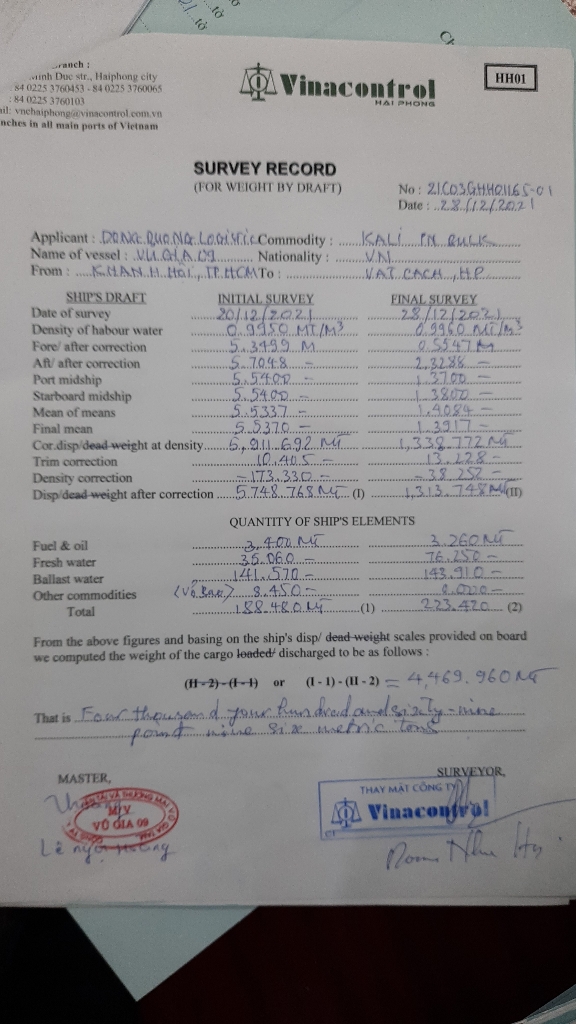 ranch :
inh Duc str., Haiphong city
84 0225 3760453 - 84 0225 3760065
: 84 0225 3760103
il: vnchaiphong@vinacontrol.com.vn
nches in all main ports of Vietnam
Vinacontrol
HAI PHONG
HH01
SURVEY RECORD
(FOR WEIGHT BY DRAFT)
No : 21C03GHH01165-01
Date : 28/12/2021
Applicant : DONG QUONG LOGISTIC Commodity : KALI IN BULK
Name of vessel : VU GIA 09 Nationality : VN
From : KHANH HOI, TP HCM To : VAT CACH, HP
SHIP'S DRAFT INITIAL SURVEY FINAL SURVEY
Date of survey 20/12/2021 28/12/2021
Density of habour water 0.9950 MT/M³ 0.9960 MT/M³
Fore/ after correction 5.3499 M 0.5547 M
Aft/ after correction 5.7048 - 2.3288 -
Port midship 5.5400 - 1.3700 -
Starboard midship 5.5400 - 1.3800 -
Mean of means 5.5337 - 1.4084 -
Final mean 5.5370 - 1.3917 -
Cor.disp/dead weight at density 5,911.692 MT 1,338.772 MT
Trim correction 10.405 - 13.228 -
Density correction -173.330 - -38.252 -
Disp/dead weight after correction 5.748.768 MT (I) 1,313.748 MT (II)
QUANTITY OF SHIP'S ELEMENTS
Fuel & oil 3.400 MT 3.260 MT
Fresh water 35.060 - 76.250 -
Ballast water 141.570 - 143.910 -
Other commodities 8.450 - 0.000 -
Total 188.480 MT (1) 223.420 (2)
From the above figures and basing on the ship's disp/ dead weight scales provided on board
we computed the weight of the cargo loaded/ discharged to be as follows :
(II - 2) - (I - 1) or (I - 1) - (II - 2) = 4,469.960 MT
That is Four thousand four hundred and sixty-nine
point nine six metric tons
MASTER,
SURVEYOR,
THAY MẶT CÔNG TY
Vinacontrol
M/V
VŨ GIA 09